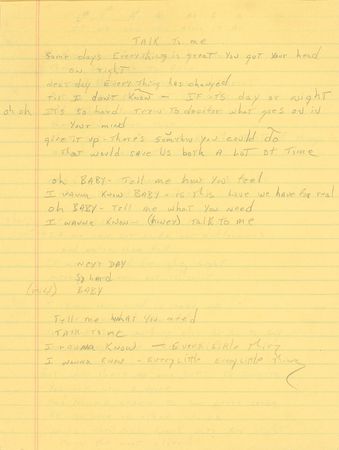 TALK TO me
Some days Everything is great - You got Your head
on right
next day Every Thing has changed
till I don't Know - IF ITS day or night
oh oh It's so hard Tryin To desifer what goes on in
Your mind
give it up - There's somehow you could do
That would save Us both A LOT OF Time
oh BABY - Tell me how You feel
I wanna Know BABY - is This Love we have For real
oh BABY - Tell me what You need
I wanna Know - (honey) TALK To me
NEXT DAY
So hard
BABY
Tell me what You need
TALK To me
I wanna Know - Every Little Thing
I wanna Know - Every Little Every Little Thing